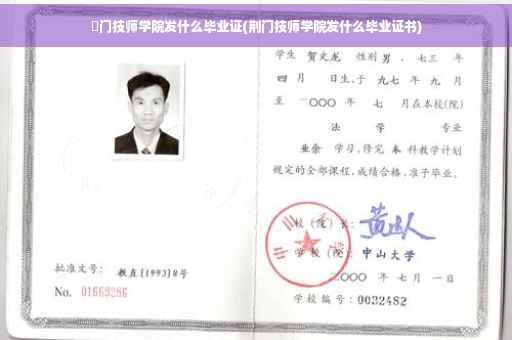 门技师学院发什么毕业证(荆门技师学院发什么毕业证书)
学生 贺文龙 性别 男 、七三 年
四 月 日生,于 九七 年 九 月
至 二〇〇〇 年 七 月在本校(院)
法 学 专业
业余 学习,修完 本 科教学计划
规定的全部课程,成绩合格,准予毕业。
校(院)长:
学校(院): 中山大学
二〇〇〇 年 七 月 一 日
批准文号: 教直(1993)8号
No. 01663286
学校编号: 0032482